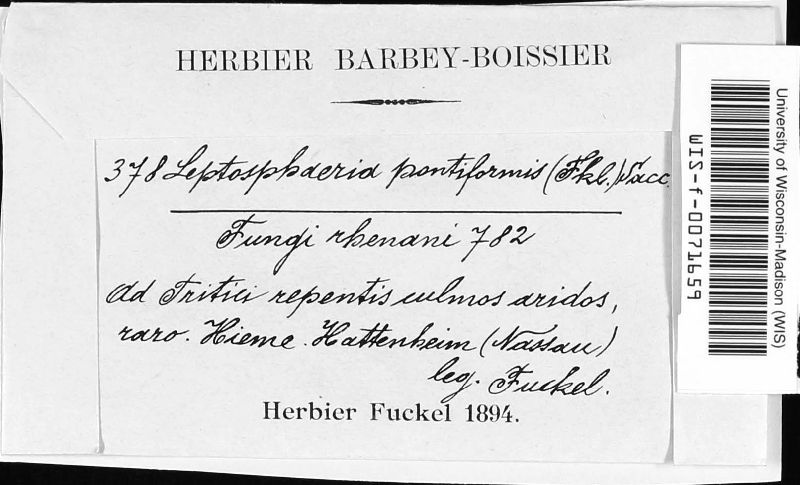 HERBIER BARBEY-BOISSIER
378 Leptosphaeria pontiformis (Fkl.) Sacc.
Fungi rhenani 782
Ad Tritici repentis culmos aridos,
raro. Hieme. Hattenheim (Nassau)
leg. Fuckel.
Herbier Fuckel 1894.
University of Wisconsin-Madison (WIS)
WIS-f-0071659